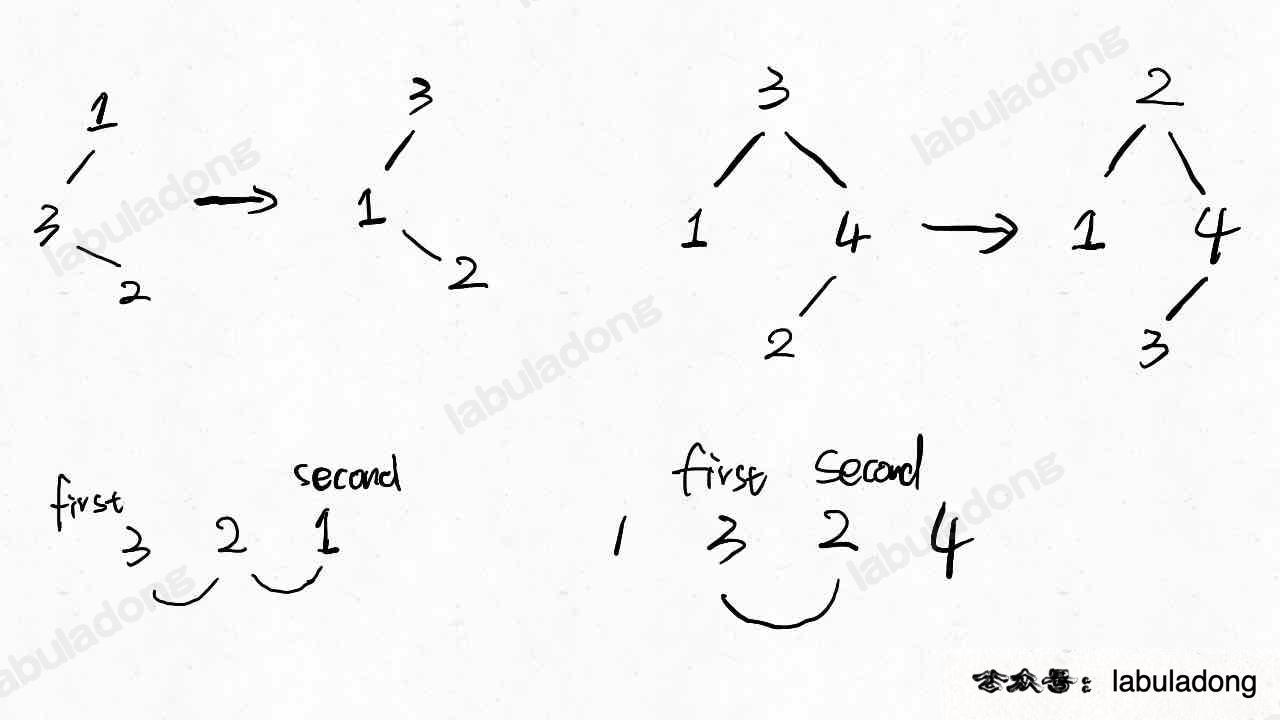 1 3 3 2
3 1 1 4 1 4
2 2 2 3
first second first second
3 2 1 1 3 2 4
公众号：labuladong
labuladong
labuladong
labuladong
labuladong
labuladong